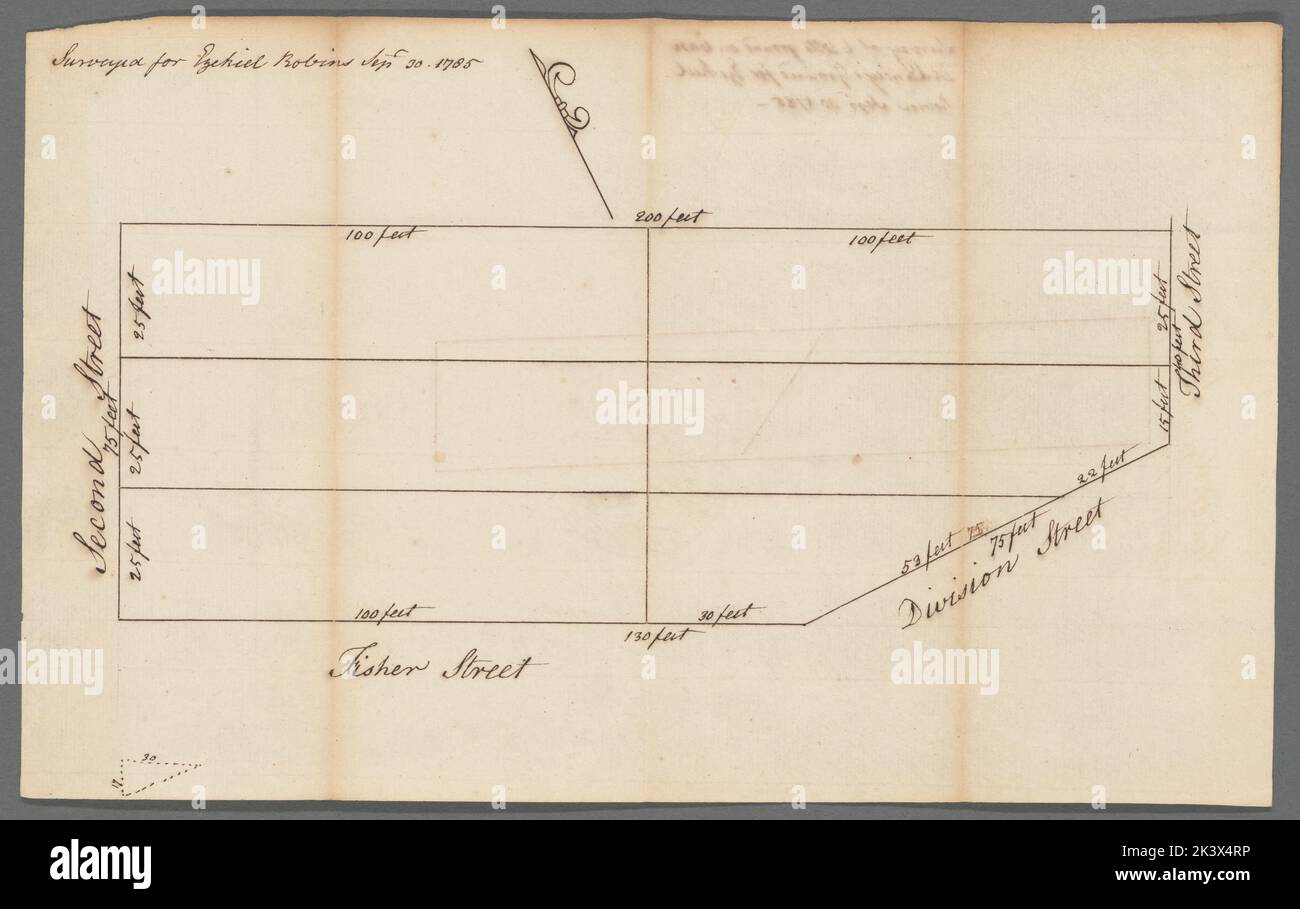 Surveyed for Ezekiel Robins Sepr 30. 1785
200 feet
100 feet
100 feet
25 feet
25 feet
25 feet
Second Street
75 feet
25 feet
15 feet
40 feet
Third Street
22 feet
53 feet
75
75 feet
Division Street
100 feet
30 feet
130 feet
Fisher Street
30
17
alamy
a
alamy
Image ID: 2K3X4RP
www.alamy.com